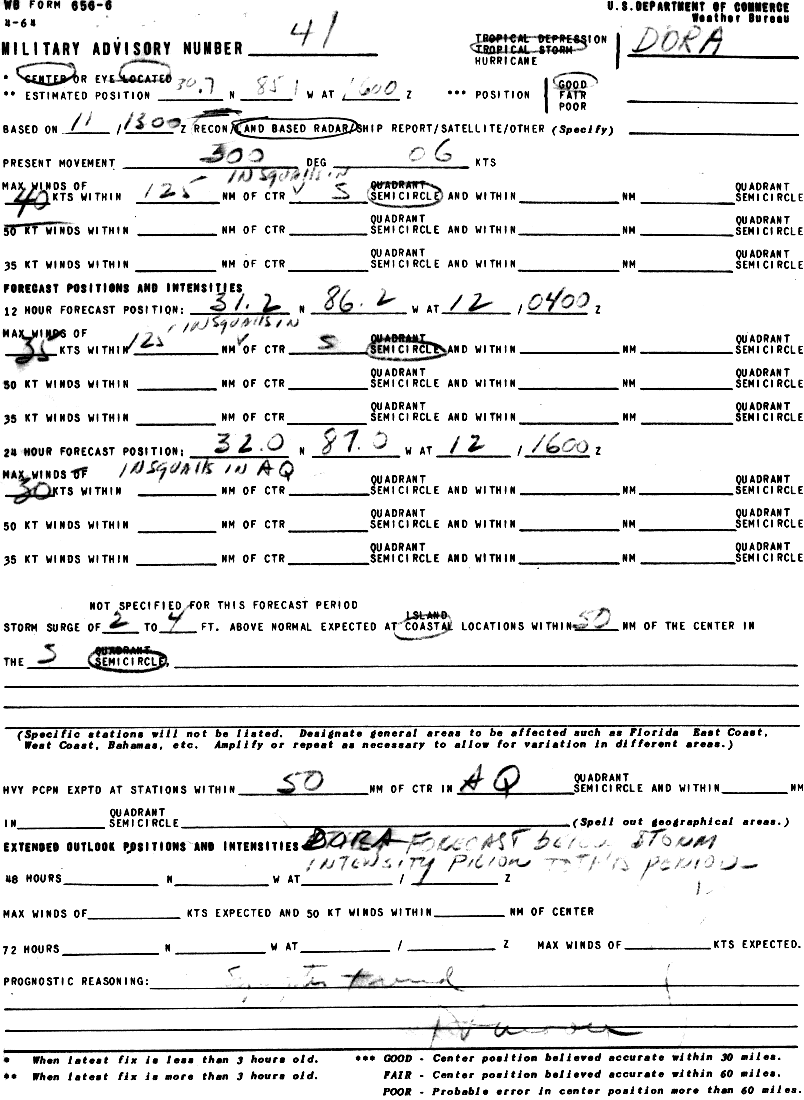 WB FORM 656-6 U.S. DEPARTMENT OF COMMERCE
4-64 Weather Bureau
MILITARY ADVISORY NUMBER 41 TROPICAL DEPRESSION TROPICAL STORM HURRICANE DORA
* CENTER OR EYE LOCATED
** ESTIMATED POSITION 30.7 N 85 1 W AT 1600 Z *** POSITION GOOD FAIR POOR
BASED ON 11 / 1300 Z RECON/LAND BASED RADAR/SHIP REPORT/SATELLITE/OTHER (Specify)
PRESENT MOVEMENT 300 DEG 06 KTS
IN SQUALLS IN
MAX WINDS OF QUADRANT QUADRANT
40 KTS WITHIN 125 NM OF CTR S SEMICIRCLE AND WITHIN NM SEMICIRCLE
QUADRANT QUADRANT
50 KT WINDS WITHIN NM OF CTR SEMICIRCLE AND WITHIN NM SEMICIRCLE
QUADRANT QUADRANT
35 KT WINDS WITHIN NM OF CTR SEMICIRCLE AND WITHIN NM SEMICIRCLE
FORECAST POSITIONS AND INTENSITIES
12 HOUR FORECAST POSITION: 31.2 N 86.2 W AT 12 / 0400 Z
MAX WINDS OF IN SQUALLS IN QUADRANT QUADRANT
35 KTS WITHIN 125 NM OF CTR S SEMICIRCLE AND WITHIN NM SEMICIRCLE
QUADRANT QUADRANT
50 KT WINDS WITHIN NM OF CTR SEMICIRCLE AND WITHIN NM SEMICIRCLE
QUADRANT QUADRANT
35 KT WINDS WITHIN NM OF CTR SEMICIRCLE AND WITHIN NM SEMICIRCLE
24 HOUR FORECAST POSITION: 32.0 N 87.0 W AT 12 / 1600 Z
MAX WINDS OF IN SQUALLS IN AQ QUADRANT QUADRANT
30 KTS WITHIN NM OF CTR SEMICIRCLE AND WITHIN NM SEMICIRCLE
QUADRANT QUADRANT
50 KT WINDS WITHIN NM OF CTR SEMICIRCLE AND WITHIN NM SEMICIRCLE
QUADRANT QUADRANT
35 KT WINDS WITHIN NM OF CTR SEMICIRCLE AND WITHIN NM SEMICIRCLE
NOT SPECIFIED FOR THIS FORECAST PERIOD
ISLAND
STORM SURGE OF 2 TO 4 FT. ABOVE NORMAL EXPECTED AT COASTAL LOCATIONS WITHIN 50 NM OF THE CENTER IN
QUADRANT
THE S SEMICIRCLE,
(Specific stations will not be listed. Designate general areas to be affected such as Florida East Coast,
West Coast, Bahamas, etc. Amplify or repeat as necessary to allow for variation in different areas.)
QUADRANT
HVY PCPN EXPTD AT STATIONS WITHIN 50 NM OF CTR IN AQ SEMICIRCLE AND WITHIN NM
QUADRANT
IN SEMICIRCLE (Spell out geographical areas.)
EXTENDED OUTLOOK POSITIONS AND INTENSITIES DORA FORECAST below STORM
INTENSITY TO THIS PERIOD
48 HOURS N W AT / Z
MAX WINDS OF KTS EXPECTED AND 50 KT WINDS WITHIN NM OF CENTER
72 HOURS N W AT / Z MAX WINDS OF KTS EXPECTED.
PROGNOSTIC REASONING:
* When latest fix is less than 3 hours old. *** GOOD - Center position believed accurate within 30 miles.
** When latest fix is more than 3 hours old. FAIR - Center position believed accurate within 60 miles.
POOR - Probable error in center position more than 60 miles.